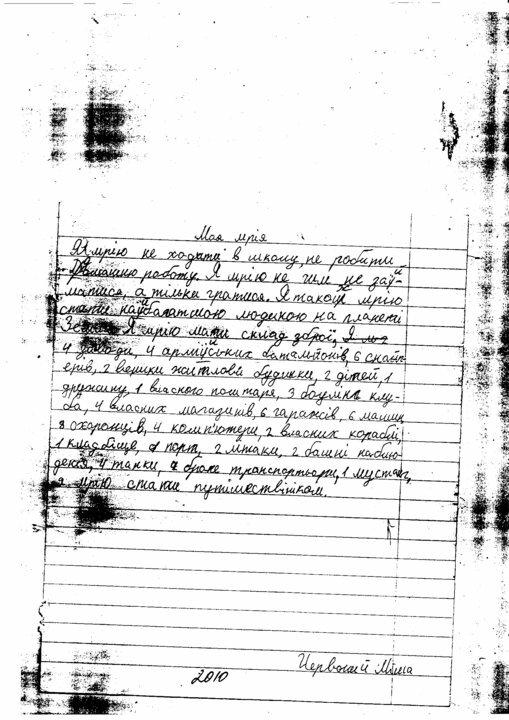 Моя мрія
Я мрію не ходити в школу, не робити
домашню роботу. Я мрію не чим не зай-
матися, а тільки гратися. Я також мрію
стати найбагатшою людиною на планеті
Земля. Я мрію мати склад зброї,
4 заводи, 4 армійських батальйонів, 6 снайп-
ерів, 2 великих житлові будинки, 2 дітей, 1
дружину, 1 власного поштаря, 3 боулінг клу-
ба, 4 власних магазинів, 6 гаражів, 6 машин
8 охоронців, 4 комп'ютери, 2 власних кораблі,
1 кладбіще, 1 порт, 2 літаки, 2 башні наблю-
дення, 4 танки, броне транспортьори, 1 мустанг,
я мрію стати путішествініком.
2010
Червоний Міша